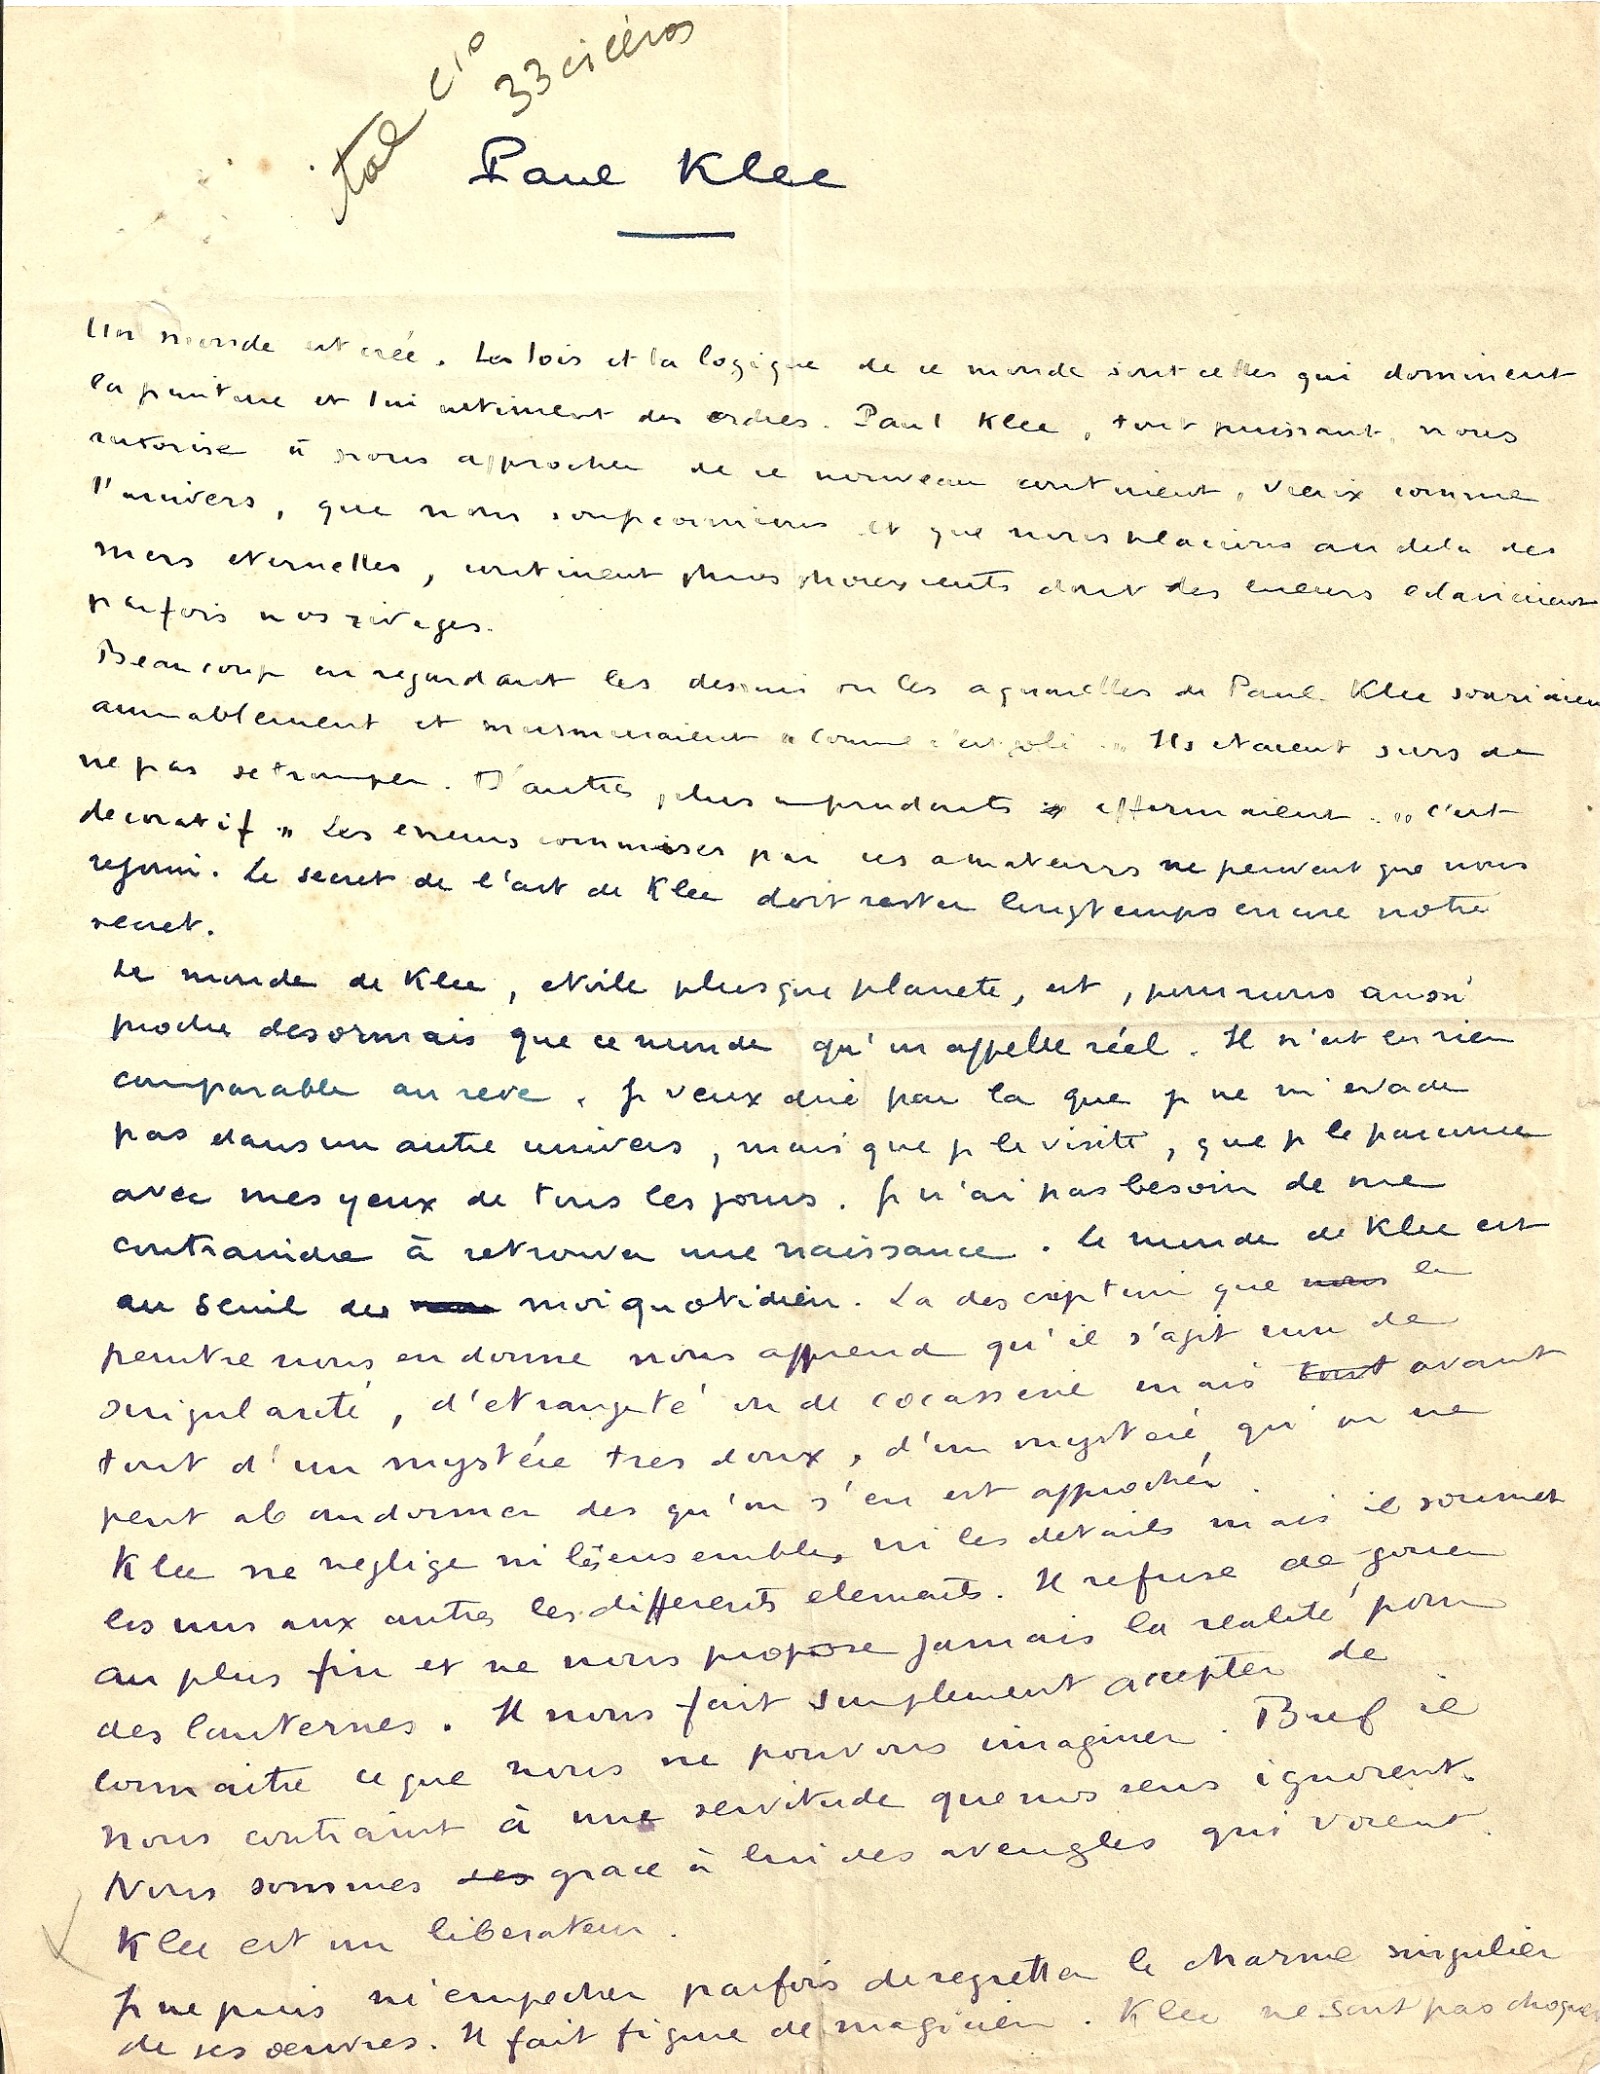 ital c10
33 cicéros
Paul Klee
Un monde est créé. Les lois et la logique de ce monde sont celles qui dominent
la peinture et lui intiment des ordres. Paul Klee, tout puissant, nous
autorise à nous approcher de ce nouveau continent, vieux comme
l'univers, que nous soupconnions et que nous placions au dela des
mers eternelles, continent phosphorescents dont des lueurs eclairaient
parfois nos rivages.
Beaucoup en regardant les dessins ou les aquarelles de Paul Klee souriaient
aimablement et murmuraient "Comme c'est joli." Ils etaient surs de
ne pas se tromper. D'autres, plus imprudents affirmaient : "c'est
decoratif" Les erreurs commises par ces amateurs ne peuvent que nous
rejouir. Le secret de l'art de Klee doit rester longtemps encore notre
secret.
Le monde de Klee, etoile plus que planete, est, pour nous aussi
proche desormais que ce monde qu'on appelle réel. Il n'est en rien
comparable au reve. Je veux dire par la que je ne m'evade
pas dans un autre univers, mais que je le visite, que je le parcoure
avec mes yeux de tous les jours. Je n'ai pas besoin de me
contraindre à retrouver une naissance. Le monde de Klee est
au seuil du moi quotidien. La description que nous le
peintre nous en donne nous apprend qu'il s'agit non de
singularité, d'etrangeté ou de cocasserie mais tout avant
tout d'un mystére tres doux, d'un mystére qu'on ne
peut abandonner des qu'on s'en est approché.
Klee ne neglige ni les ensembles, ni les details mais il soumet
les uns aux autres les differents elements. Il refuse de jouer
au plus fin et ne nous propose jamais la realité pour
des lanternes. Il nous fait simplement accepter de
connaitre ce que nous ne pouvons imaginer. Bref il
nous contraint à une servitude que nos sens ignorent.
Nous sommes des grace à lui des aveugles qui voient.
Klee est un liberateur.
Je ne puis m'empecher parfois de regretter le charme singulier
de ses oeuvres. Il fait figure de magicien. Klee ne sait pas choquer